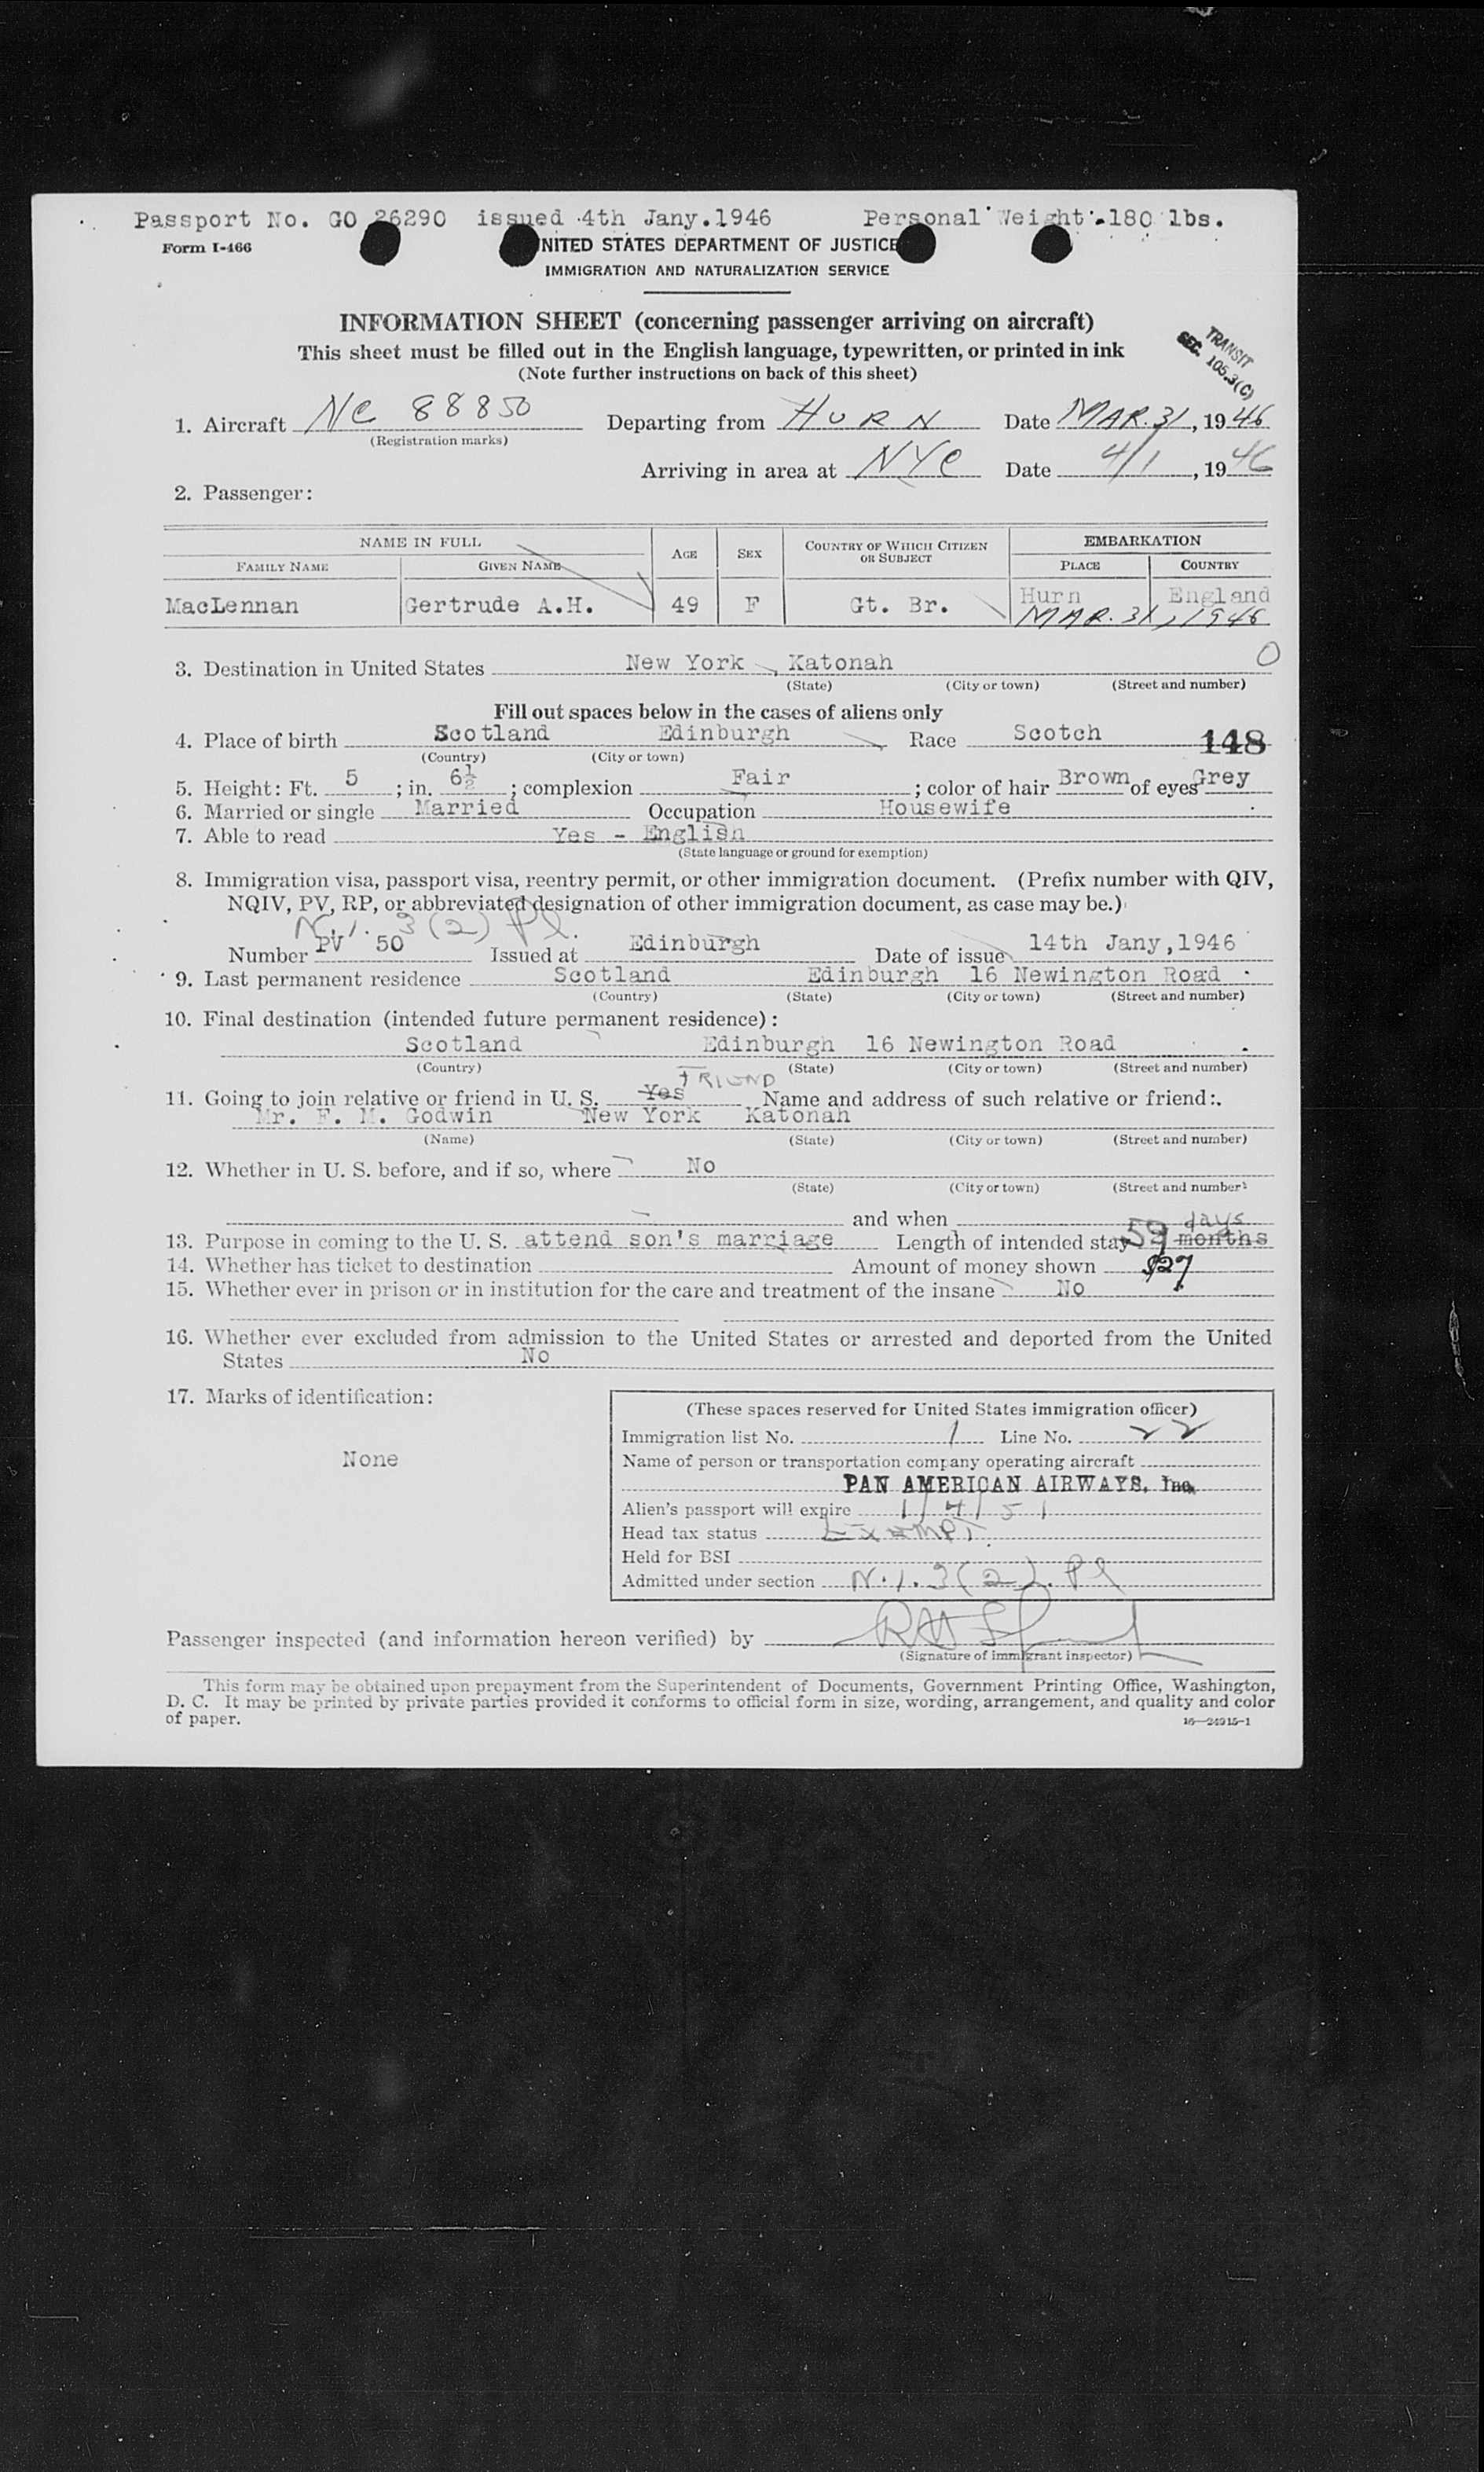 Passport No. GO 26290 issued 4th Jany.1946 Personal Weight 180 lbs.
Form I-466
NITED STATES DEPARTMENT OF JUSTICE
IMMIGRATION AND NATURALIZATION SERVICE
INFORMATION SHEET (concerning passenger arriving on aircraft)
This sheet must be filled out in the English language, typewritten, or printed in ink
(Note further instructions on back of this sheet)
TRANSIT
SEC. 105.3(C)
1. Aircraft NC 88850 Departing from HURN Date MAR. 31, 1946
(Registration marks)
Arriving in area at NYC Date 4/1, 1946
2. Passenger:
NAME IN FULL AGE SEX COUNTRY OF WHICH CITIZEN OR SUBJECT EMBARKATION
FAMILY NAME GIVEN NAME PLACE COUNTRY
MacLennan Gertrude A.H. 49 F Gt. Br. Hurn England
MAR. 31, 1946
3. Destination in United States New York, Katonah 0
(State) (City or town) (Street and number)
Fill out spaces below in the cases of aliens only
4. Place of birth Scotland Edinburgh Race Scotch 148
(Country) (City or town)
5. Height: Ft. 5; in. 6½; complexion Fair; color of hair Brown of eyes Grey
6. Married or single Married Occupation Housewife
7. Able to read Yes - English
(State language or ground for exemption)
8. Immigration visa, passport visa, reentry permit, or other immigration document. (Prefix number with QIV,
NQIV, PV, RP, or abbreviated designation of other immigration document, as case may be.)
N.1. 3(2) Pl.
Number PV 50 Issued at Edinburgh Date of issue 14th Jany,1946
9. Last permanent residence Scotland Edinburgh 16 Newington Road
(Country) (State) (City or town) (Street and number)
10. Final destination (intended future permanent residence):
Scotland Edinburgh 16 Newington Road
(Country) (State) (City or town) (Street and number)
FRIEND
11. Going to join relative or friend in U. S. Yes Name and address of such relative or friend:
Mr. F. M. Godwin New York Katonah
(Name) (State) (City or town) (Street and number)
12. Whether in U. S. before, and if so, where No
(State) (City or town) (Street and number)
and when
days
13. Purpose in coming to the U. S. attend son's marriage Length of intended stay 59 months
14. Whether has ticket to destination Amount of money shown $27
15. Whether ever in prison or in institution for the care and treatment of the insane No
16. Whether ever excluded from admission to the United States or arrested and deported from the United
States No
17. Marks of identification:
None
(These spaces reserved for United States immigration officer)
Immigration list No. 1 Line No. 22
Name of person or transportation company operating aircraft
PAN AMERICAN AIRWAYS, Inc.
Alien's passport will expire 1/4/51
Head tax status Exempt
Held for BSI
Admitted under section N.1.3(2). Pl
Passenger inspected (and information hereon verified) by
(Signature of immigrant inspector)
This form may be obtained upon prepayment from the Superintendent of Documents, Government Printing Office, Washington,
D. C. It may be printed by private parties provided it conforms to official form in size, wording, arrangement, and quality and color
of paper.
16—24915-1